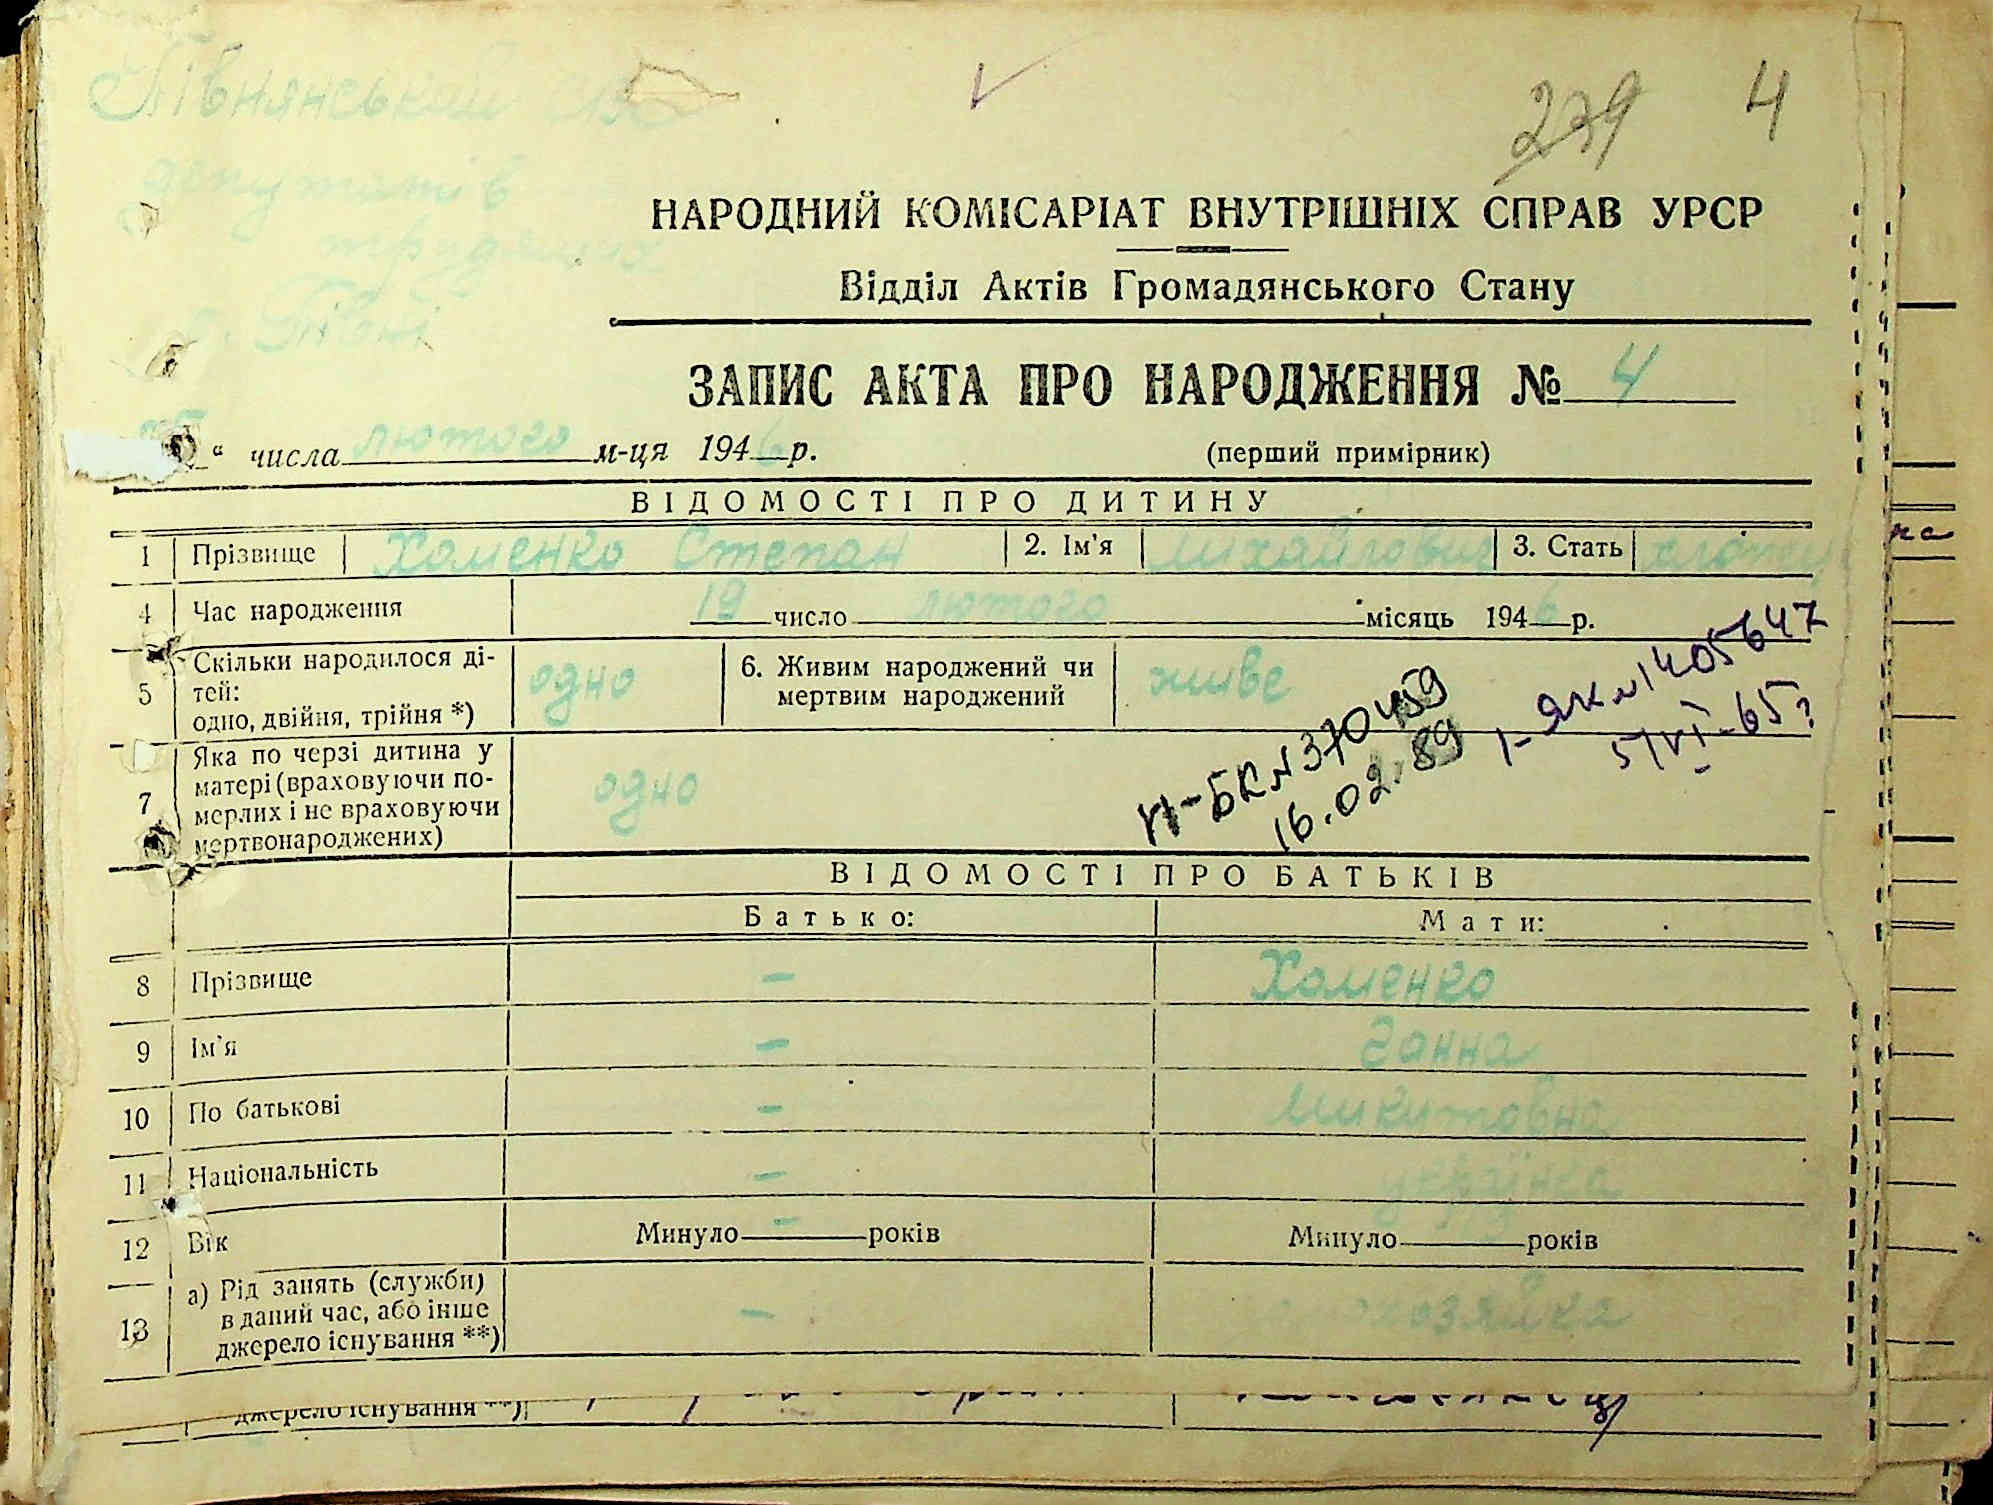 Півнянський
депутатів
трудящих
с. Півні
279 4
НАРОДНИЙ КОМІСАРІАТ ВНУТРІШНІХ СПРАВ УРСР
Відділ Актів Громадянського Стану
ЗАПИС АКТА ПРО НАРОДЖЕННЯ № 4
“ числа лютого м-ця 1946 р. (перший примірник)
ВІДОМОСТІ ПРО ДИТИНУ
1 Прізвище Хоменко Степан 2. Ім'я Михайлович 3. Стать
4 Час народження 19 число лютого місяць 1946 р.
5 Скільки народилося ді-
тей:
одно, двійня, трійня *) одно 6. Живим народжений чи
мертвим народжений живе
7 Яка по черзі дитина у
матері (враховуючи по-
мерлих і не враховуючи
мертвонароджених) одно
II-БК № 370459
16.02.89
I-ЯК № 1405647
5/VI-65
ВІДОМОСТІ ПРО БАТЬКІВ
Батько: Мати:
8 Прізвище - Хоменко
9 Ім'я - Ганна
10 По батькові - Микитовна
11 Національність - українка
12 Вік Минуло - років Минуло років
13 а) Рід занять (служби)
в даний час, або інше
джерело існування **) - хозяйка
джерело існування **)